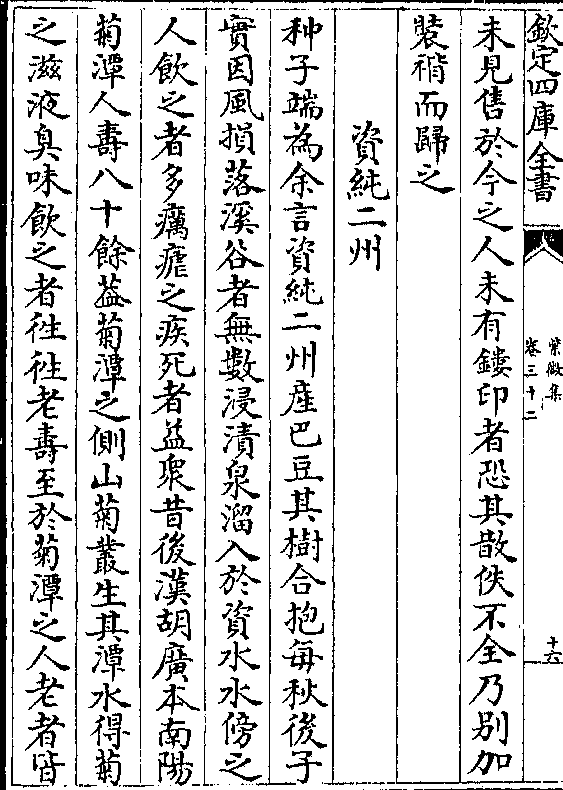 欽定四庫全書
紫微集
卷三十二
十六
未見售於今之人未有鏤印者恐其散佚不全乃别加
裝褙而歸之
資純二州
种子端為余言資純二州産巴豆其樹合抱每秋後子
實因風損落溪谷者無數浸漬泉溜入於資水水傍之
人飲之者多癘瘧之疾死者益衆昔後漢胡廣本南陽
菊潭人壽八十餘葢菊潭之側山菊叢生其潭水得菊
之滋液臭味飲之者徃徃老壽至於菊潭之人老者皆